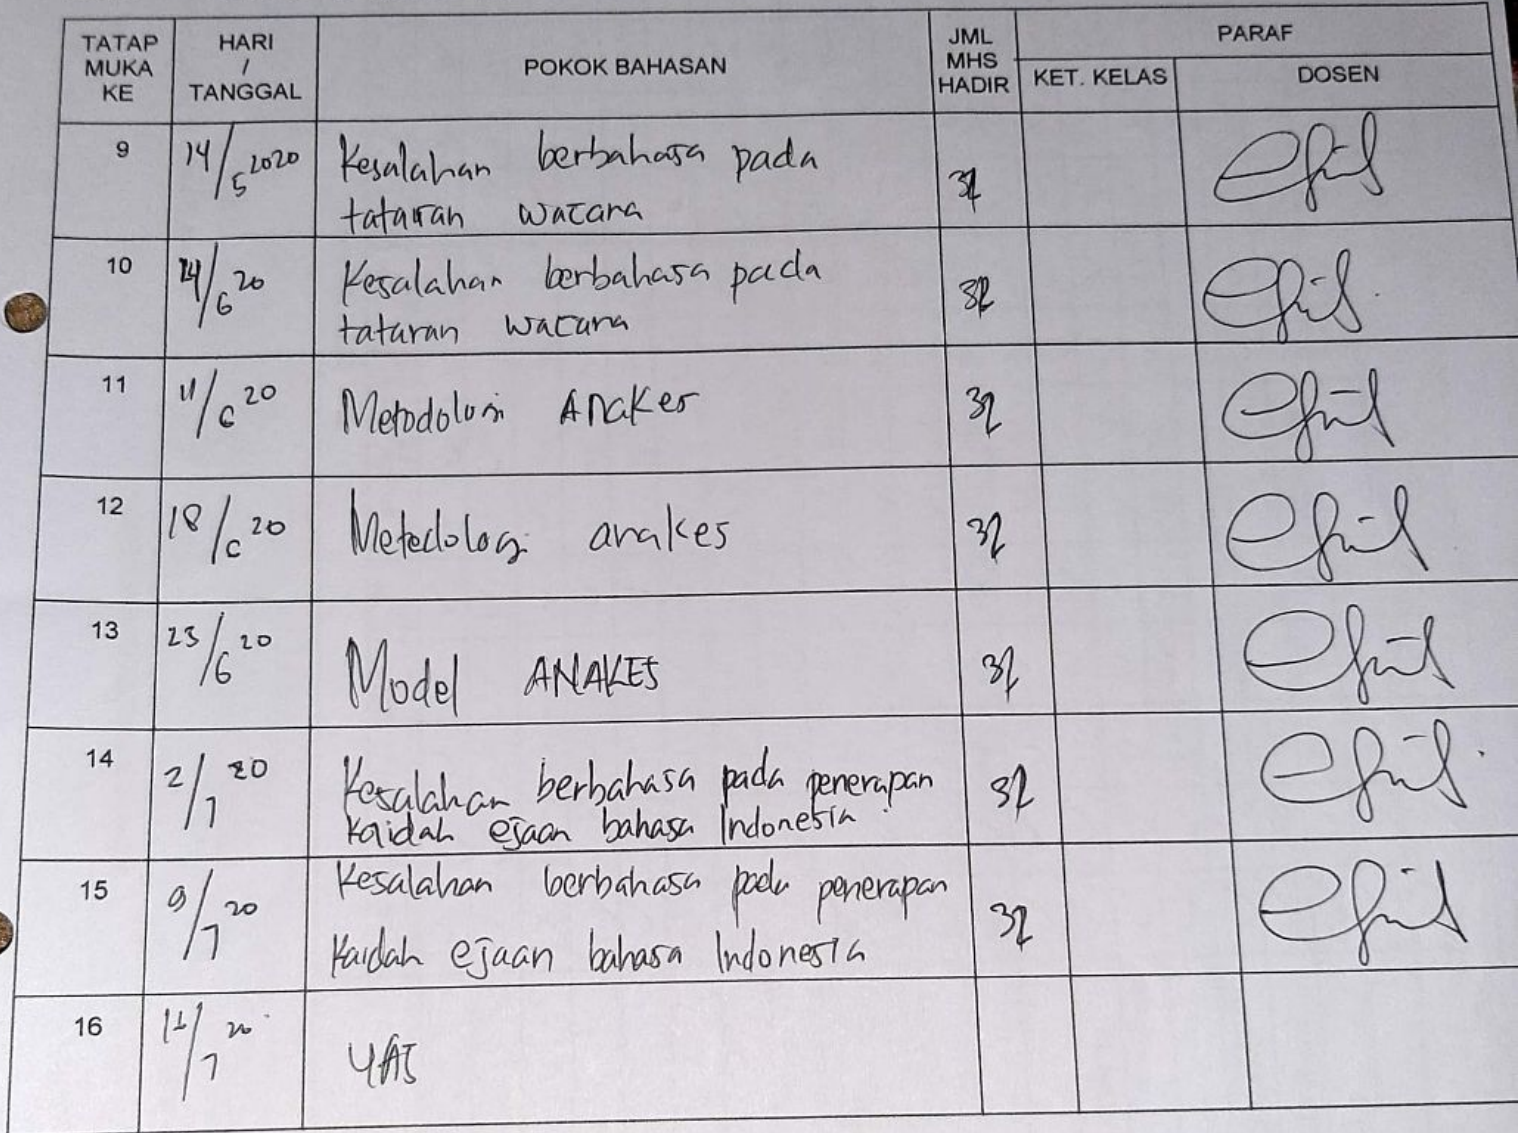 TATAP MUKA KE
HARI / TANGGAL
POKOK BAHASAN
JML MHS HADIR
PARAF
KET. KELAS
DOSEN
9
14/5 2020
Kesalahan berbahasa pada
tataran wacana
10
/6 20
Kesalahan berbahasa pada
tataran wacana
32
11
11/6 20
Metodologi Anakes
32
12
18/6 20
Metodologi anakes
32
13
/6 20
Model ANAKES
32
14
2/7 20
Kesalahan berbahasa pada penerapan
kaidah ejaan bahasa Indonesia
32
15
9/7 20
Kesalahan berbahasa pada penerapan
kaidah ejaan bahasa Indonesia
32
16
/7 20
UAS